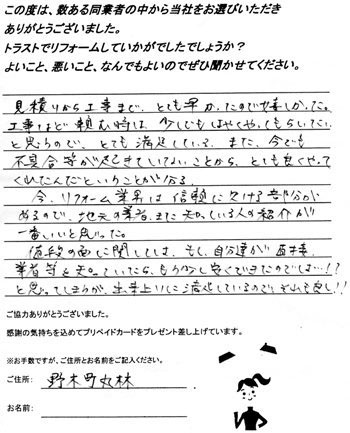 この度は、数ある同業者の中から当社をお選びいただき
ありがとうございました。
トラストでリフォームしていかがでしたでしょうか？
よいこと、悪いこと、なんでもよいのでぜひ聞かせてください。
見積りから工事まで、とても早かったので嬉しかった。
工事など頼む時は、少しでもはやくやってもらいたい
と思うので、とても満足している。また、今でも
不具合等が起きていないことから、とても良くやって
くれたんだということが分る。
今、リフォーム業界は信頼に欠ける部分が
あるので、地元の業者、また知っている人の紹介が
一番いいと思った。
値段の面に関しては、もし、自分達が直接、
業者等と知っていたら、もう少し安くできたのでは…!?
と思ってしまうが、出来上りに満足しているので、それも良し!!
ご協力ありがとうございました。
感謝の気持ちを込めてプリペイドカードをプレゼント差し上げています。
※お手数ですが、ご住所とお名前をご記入ください。
ご住所： 野木町丸林
お名前：